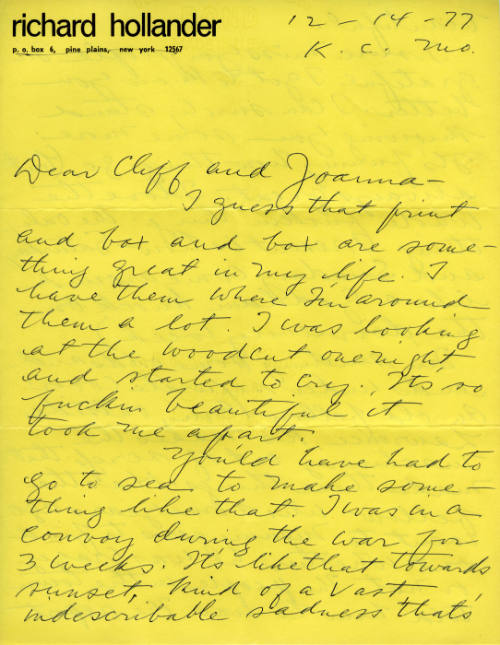 richard hollander
p. o. box 6, pine plains, new york 12567
12-14-77
K. C. Mo.
Dear Cliff and Joanna-
I guess that print
and box and box are some-
thing great in my life. I
have them where I'm around
them a lot. I was looking
at the woodcut one night
and started to cry. It's so
fuckin beautiful it
took me apart.
You'ld have had to
go to sea to make some-
thing like that. I was in a
convoy during the war for
3 weeks. It's like that towards
sunset, kind of a vast,
indescribable sadness that's